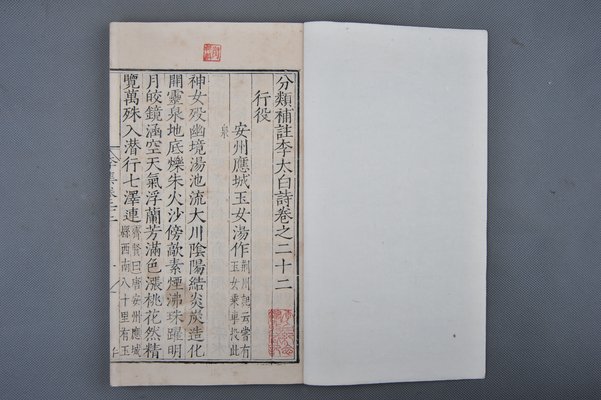 分類補註李太白詩卷之二十二
行役
安州應城玉女湯作荆州記云嘗有玉女乘車投此
泉
神女殁幽境湯池流大川陰陽結炎炭造化
開靈泉地底爍朱火沙傍歊素煙沸珠躍明
月皎鏡涵空天氣浮蘭芳滿色漲桃花然精
覽萬殊入潜行七澤連齊賢曰唐安州應城縣西南八十里有玉